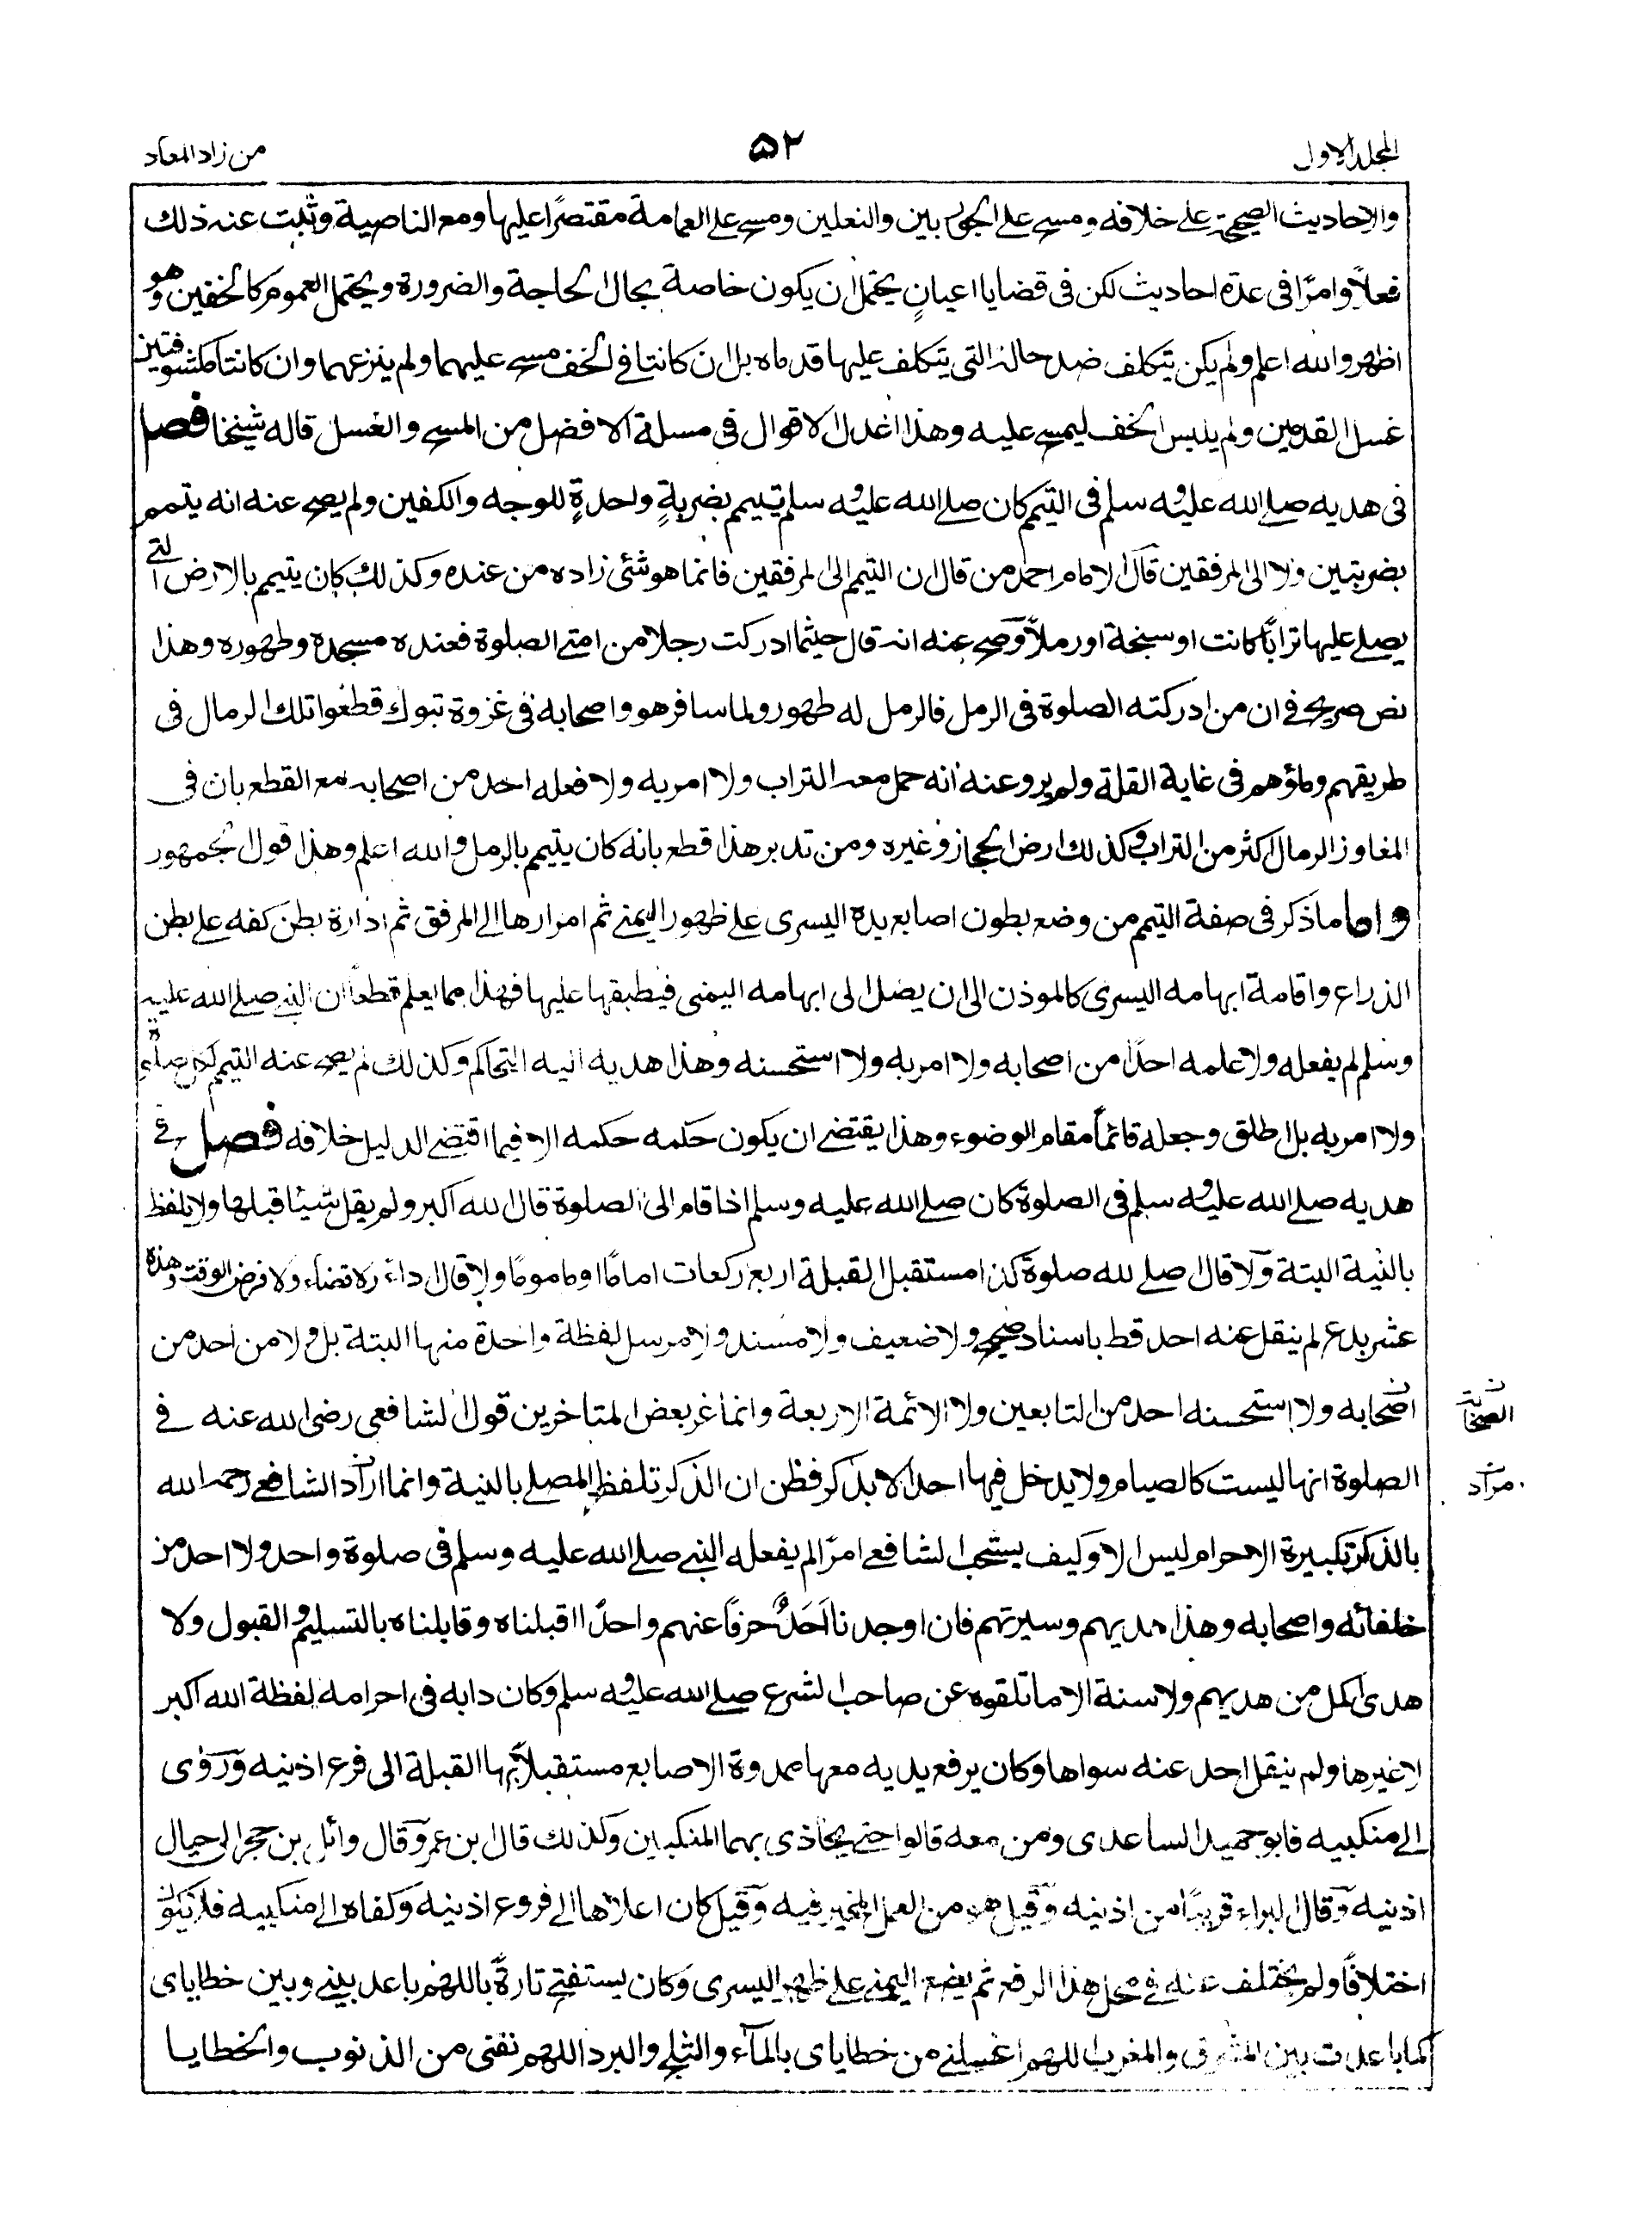 المجلد الاول
٥٢
من زاد المعاد
والاحاديث الصحيحة على خلافه ومسح على الجوربين والنعلين ومسح على العمامة مقتصرًا عليها ومع الناصية وثبت عنه ذلك
فعلًا وامرًا في عدة احاديث لكن في قضايا اعيانٍ يحتمل ان يكون خاصة بحال الحاجة والضرورة ويحتمل العموم كالخفين وهو
اظهر والله اعلم ولم يكن يتكلف ضد حاله التي يتكلف عليها قدماه بل ان كانتا في الخف مسح عليهما ولم ينزعهما وان كانتا مكشوفتين
غسل القدمين ولم يلبس الخف ليمسح عليه وهذا اعدل الاقوال في مسلة الافضل من المسح والغسل قاله شيخنا فصل
في هديه صلى الله عليه وسلم في التيمم كان صلى الله عليه وسلم يتيمم بضربةٍ واحدةٍ للوجه والكفين ولم يصح عنه انه يتمم
بضربتين ولا الى المرفقين قال الامام احمد من قال ان التيمم الى المرفقين فانما هو شئ زاده من عنده وكذلك كان يتيمم بالارض التي
يصلى عليها ترابًا كانت او سبخة او رملًا وصح عنه انه قال حيثما ادركت رجلا من امتي الصلوة فعنده مسجده وطهوره وهذا
نص صريح في ان من ادركته الصلوة في الرمل فالرمل له طهور ولما سافر هو واصحابه في غزوة تبوك قطعوا تلك الرمال في
طريقهم وماؤهم في غاية القلة ولم يرو عنه انه حمل معه التراب ولا امر به ولا فعله احد من اصحابه مع القطع بان في
المفاوز الرمال اكثر من التراب وكذلك ارض الحجاز وغيره ومن تدبر هذا قطع بانه كان يتيمم بالرمل والله اعلم وهذا قول الجمهور
واما ما ذكر في صفة التيمم من وضع بطون اصابع يده اليسرى على ظهور اليمنى ثم امرارها الى المرفق ثم ادارة بطن كفه على بطن
الذراع واقامة ابهامه اليسرى كالموذن الى ان يصل الى ابهامه اليمنى فيطبقها عليها فهذا مما يعلم قطعا ان النبي صلى الله عليه
وسلم لم يفعله ولا علمه احدًا من اصحابه ولا امر به ولا استحسنه وهذا هديه اليه التحاكم وكذلك لم يصح عنه التيمم لكل صلوة
ولا امر به بل اطلق وجعله قائمًا مقام الوضوء وهذا يقتضى ان يكون حكمه حكمه الا فيما اقتضى الدليل خلافه فصل في
هديه صلى الله عليه وسلم في الصلوة كان صلى الله عليه وسلم اذا قام الى الصلوة قال الله اكبر ولم يقل شيئا قبلها ولا يلفظ
بالنية البتة ولا قال اصلى لله صلوة كذا مستقبل القبلة اربع ركعات امامًا او مامومًا ولا قال اداءً ولا قضاء ولا فرض الوقت وهذه
عشر بدع لم ينقل عنه احد قط باسناد صحيح ولا ضعيف ولا مسند ولا مرسل لفظة واحدة منها البتة بل ولا من احد من
اصحابه ولا استحسنه احد من التابعين ولا الائمة الاربعة وانما غر بعض المتاخرين قول الشافعي رضى الله عنه في
الصلوة انها ليست كالصيام ولا يدخل فيها احد الا بذكر فظن ان الذكر تلفظ المصلى بالنية وانما اراد الشافعي رحمه الله
بالذكر تكبيرة الاحرام ليس الا وكيف يستحب الشافعي امرًا لم يفعله النبي صلى الله عليه وسلم في صلوة واحد ولا احد من
خلفائه واصحابه وهذا هديهم وسيرتهم فان اوجدنا احدٌ حرفًا عنهم واحدًا اقبلناه وقابلناه بالتسليم والقبول ولا
هدى اكمل من هديهم ولا سنة الا ما تلقوه عن صاحب الشرع صلى الله عليه وسلم وكان دابه في احرامه لفظة الله اكبر
لا غيرها ولم ينقل احد عنه سواها وكان يرفع يديه معها ممدودة الاصابع مستقبلًا بها القبلة الى فرع اذنيه وروى
الى منكبيه فابو حميد الساعدى ومن معه قالوا حتى يحاذى بهما المنكبين وكذلك قال ابن عمر وقال وائل بن حجر الى حيال
اذنيه وقال البراء قريبًا من اذنيه وقيل هو من العمل المخير فيه وقيل كان اعلاها الى فروع اذنيه وكفاه الى منكبيه فلا يكون
اختلافًا ولم يختلف عنه في محل هذا الرفع ثم يضع اليمنى على ظهر اليسرى وكان يستفتح تارةً باللهم باعد بيني وبين خطاياى
كما باعدت بين المشرق والمغرب اللهم اغسلني من خطاياى بالماء والثلج والبرد اللهم نقني من الذنوب والخطايا
الصحابة
مراد